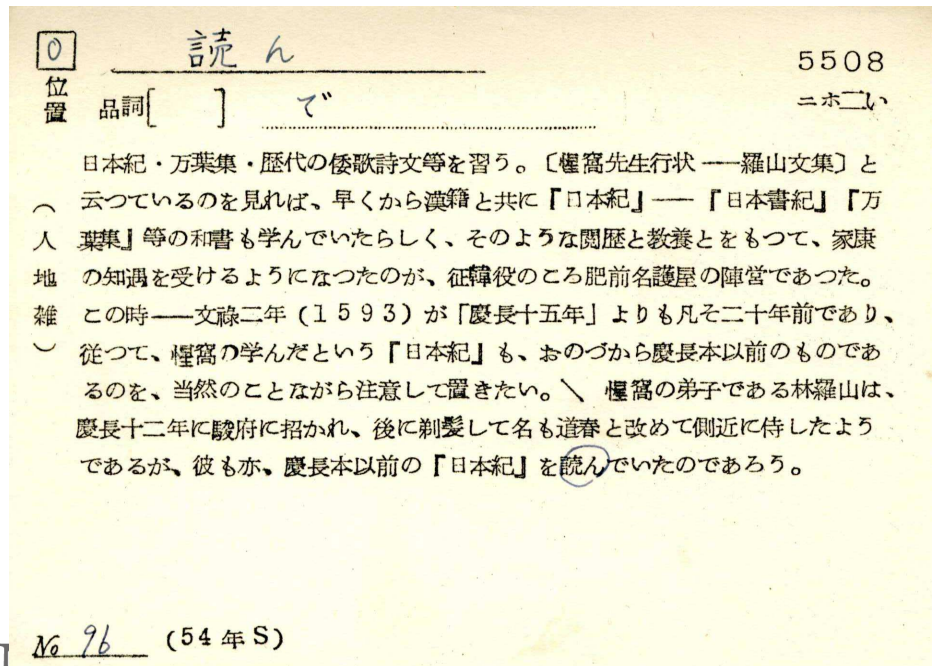 0 読ん 5508
位置 品詞[ ] で ニホ二い
日本紀・万葉集・歴代の倭歌詩文等を習う。〔惺窩先生行状――羅山文集〕と
云つているのを見れば、早くから漢籍と共に『日本紀』――『日本書紀』『万
葉集』等の和書も学んでいたらしく、そのような閲歴と教養とをもつて、家康
の知遇を受けるようになつたのが、征韓役のころ肥前名護屋の陣営であつた。
この時――文祿二年(1593)が「慶長十五年」よりも凡そ二十年前であり、
従つて、惺窩の学んだという『日本紀』も、おのづから慶長本以前のものであ
るのを、当然のことながら注意して置きたい。＼ 惺窩の弟子である林羅山は、
慶長十二年に駿府に招かれ、後に剃髪して名も道春と改めて側近に侍したよう
であるが、彼も亦、慶長本以前の『日本紀』を読んでいたのであろう。
(人地雑)
No 96 (54年S)